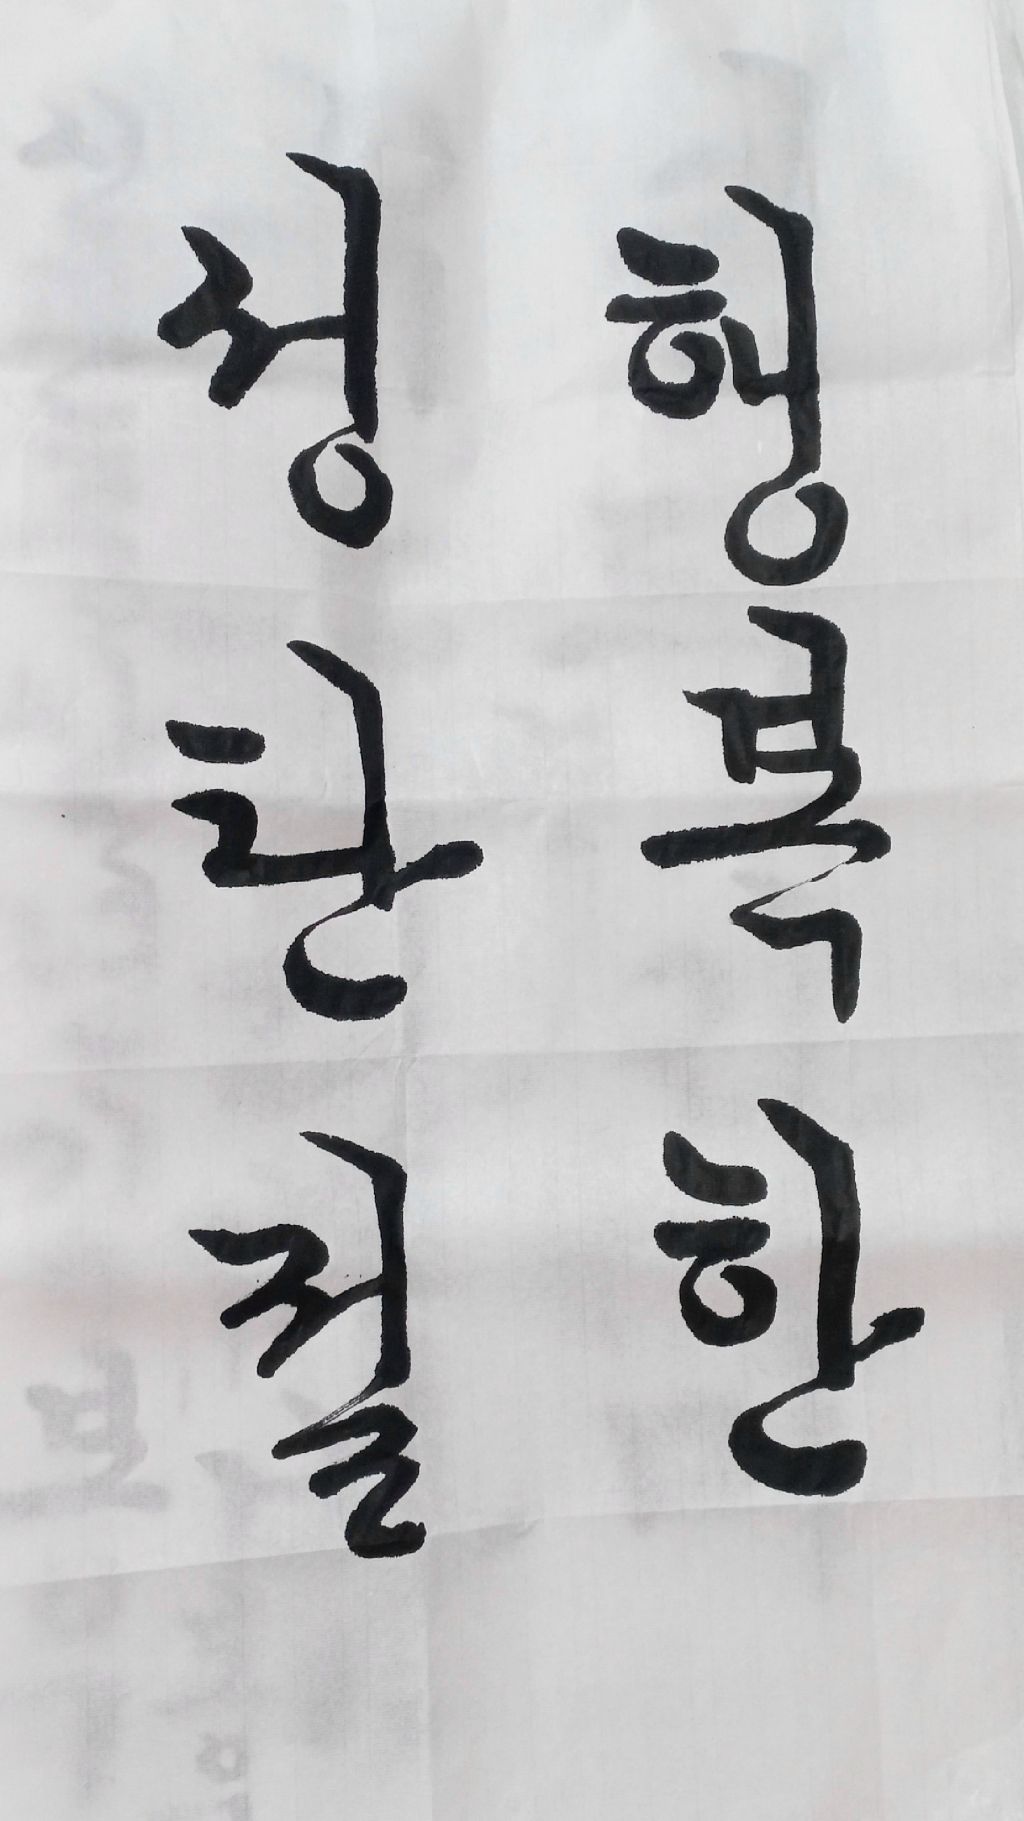 행복한
성탄절